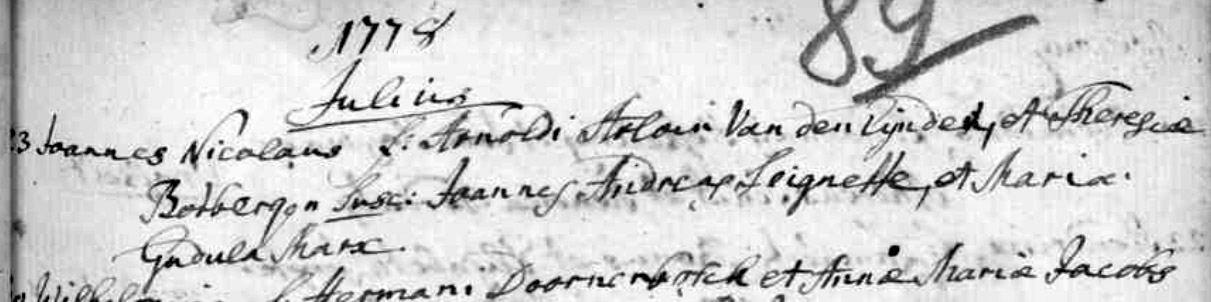 1778
89
Julius
23 Joannes Nicolaus f: Arnoldi Stelain Van den Eijnden, et Theresiæ
Botbergen Susc: Joannes Andreas Seignette, et Maria
Gudula Marx.
f. Hermani Doornenbosch et Annæ Mariæ Jacobs